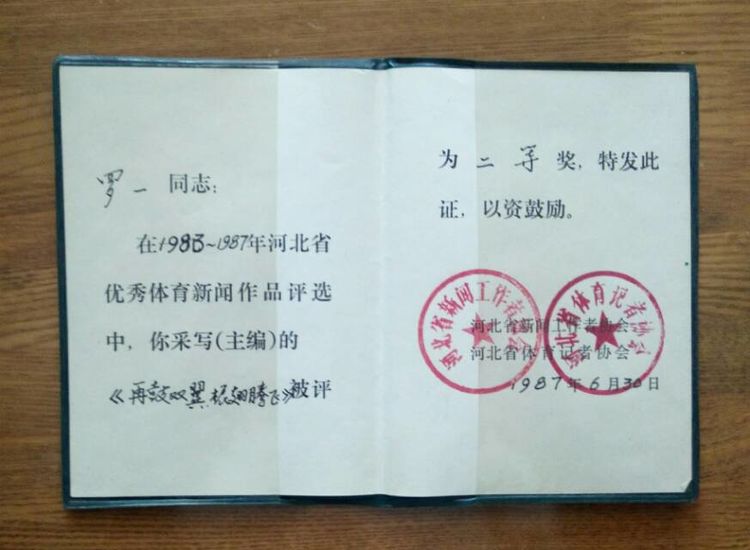 罗一同志:
在1983~1987年河北省
优秀体育新闻作品评选
中,你采写(主编)的
《再鼓双翼振翅腾飞》被评
为二等奖,特发此
证,以资鼓励。
河北省新闻工作者协会
河北省体育记者协会
河北省新闻工作者协会
河北省体育记者协会
1987年6月30日